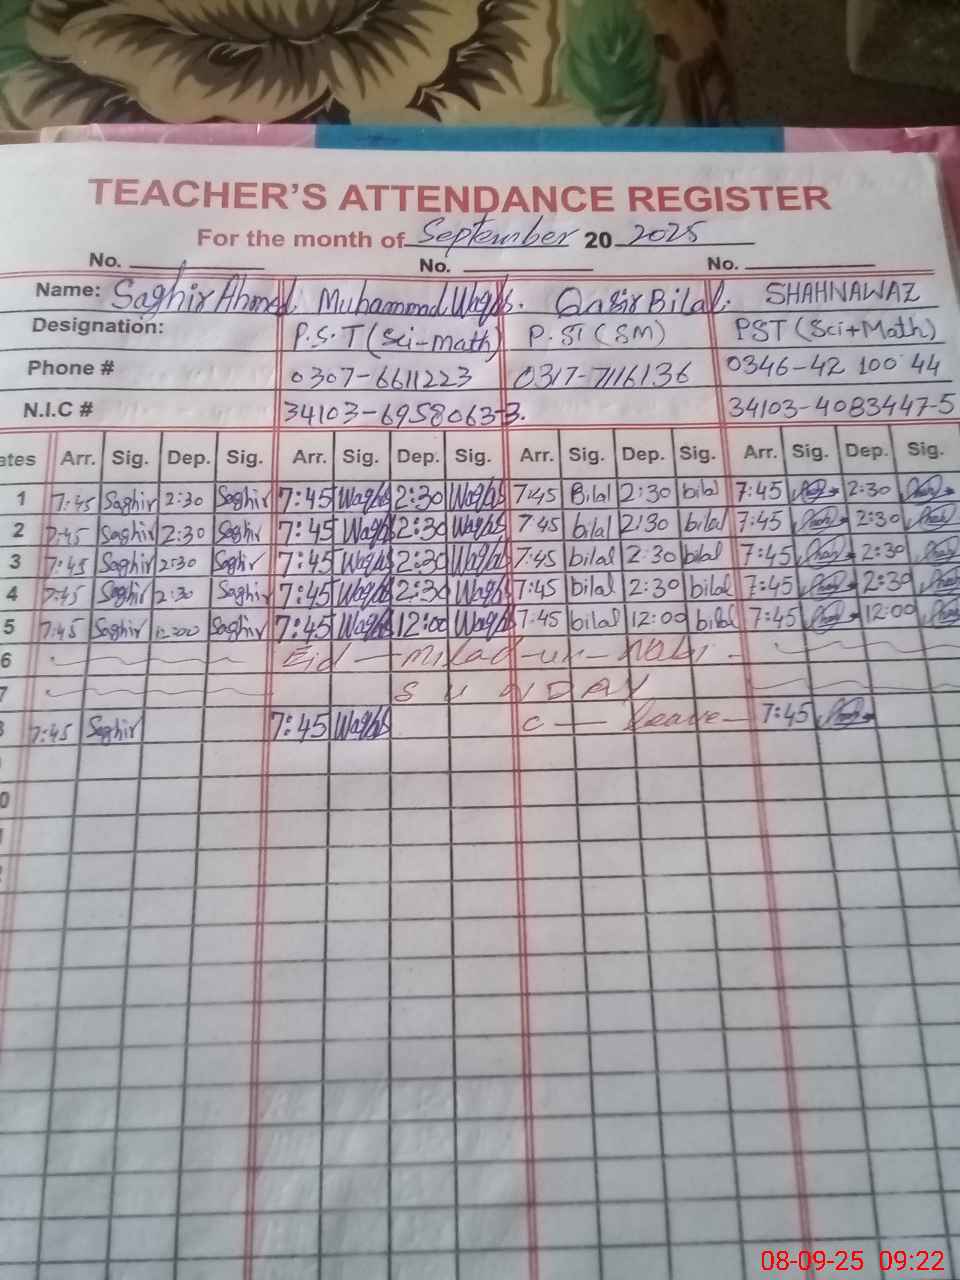 TEACHER'S ATTENDANCE REGISTER
For the month of September 20 2025
No. No. No.
Name: Saghir Ahmed Muhammad Waqas. Qasir Bilal. SHAHNAWAZ
Designation: P.S.T (Sci-math) P.ST (SM) PST (Sci+Math)
Phone # 0307-6611223 0317-7116136 0346-42 100 44
N.I.C # 34103-6958063-3. 34103-4083447-5
ates Arr. Sig. Dep. Sig. Arr. Sig. Dep. Sig. Arr. Sig. Dep. Sig. Arr. Sig. Dep. Sig.
1 7:45 Saghir 2:30 Saghir 7:45 Waqas 2:30 Waqas 7:45 Bilal 2:30 bilal 7:45 2:30
2 7:45 Saghir 2:30 Saghir 7:45 Waqas 2:30 Waqas 7:45 bilal 2:30 bilal 7:45 2:30
3 7:45 Saghir 2:30 Saghir 7:45 Waqas 2:30 Waqas 7:45 bilal 2:30 bilal 7:45 2:30
4 7:45 Saghir 2:30 Saghir 7:45 Waqas 2:30 Waqas 7:45 bilal 2:30 bilal 7:45 2:30
5 7:45 Saghir 12:00 Saghir 7:45 Waqas 12:00 Waqas 7:45 bilal 12:00 bilal 7:45 12:00
6 Eid - milad-un-Nabi -
7 SUNDAY
7:45 Saghir 7:45 Waqas c - leave - 7:45
0
08-09-25 09:22